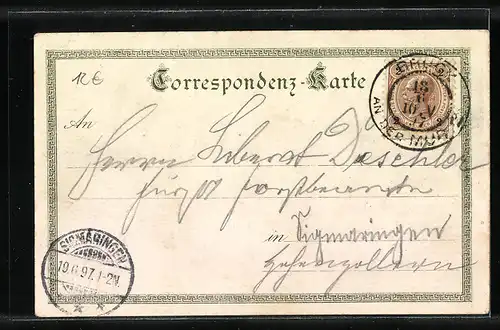 12€
Correspondenz-Karte
BRUCK
18
AN DER MUR
An
Herrn Liberat Deschler
in Sigmaringen
Hohenzollern
SIGMARINGEN
19.6.97.1-2N.